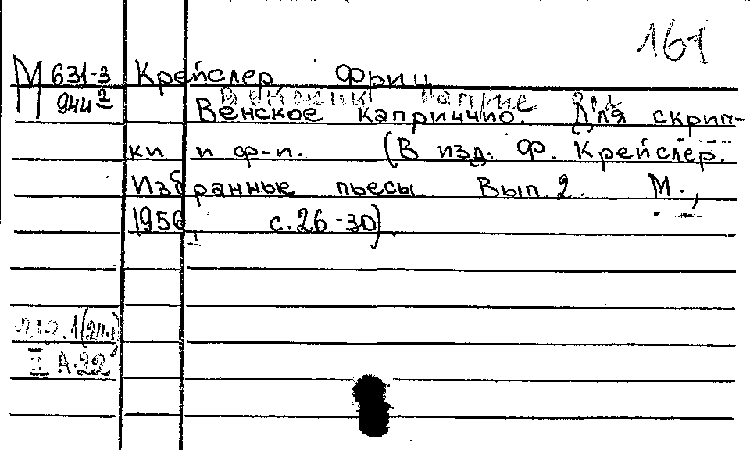 161
М 631-3 Крейслер Фриц
944²
Венское каприччио. Для скрип-
ки и ф-п. (В изд: Ф. Крейслер.
Избранные пьесы Вып. 2. М.,
1956, с. 26-30).
II А.22